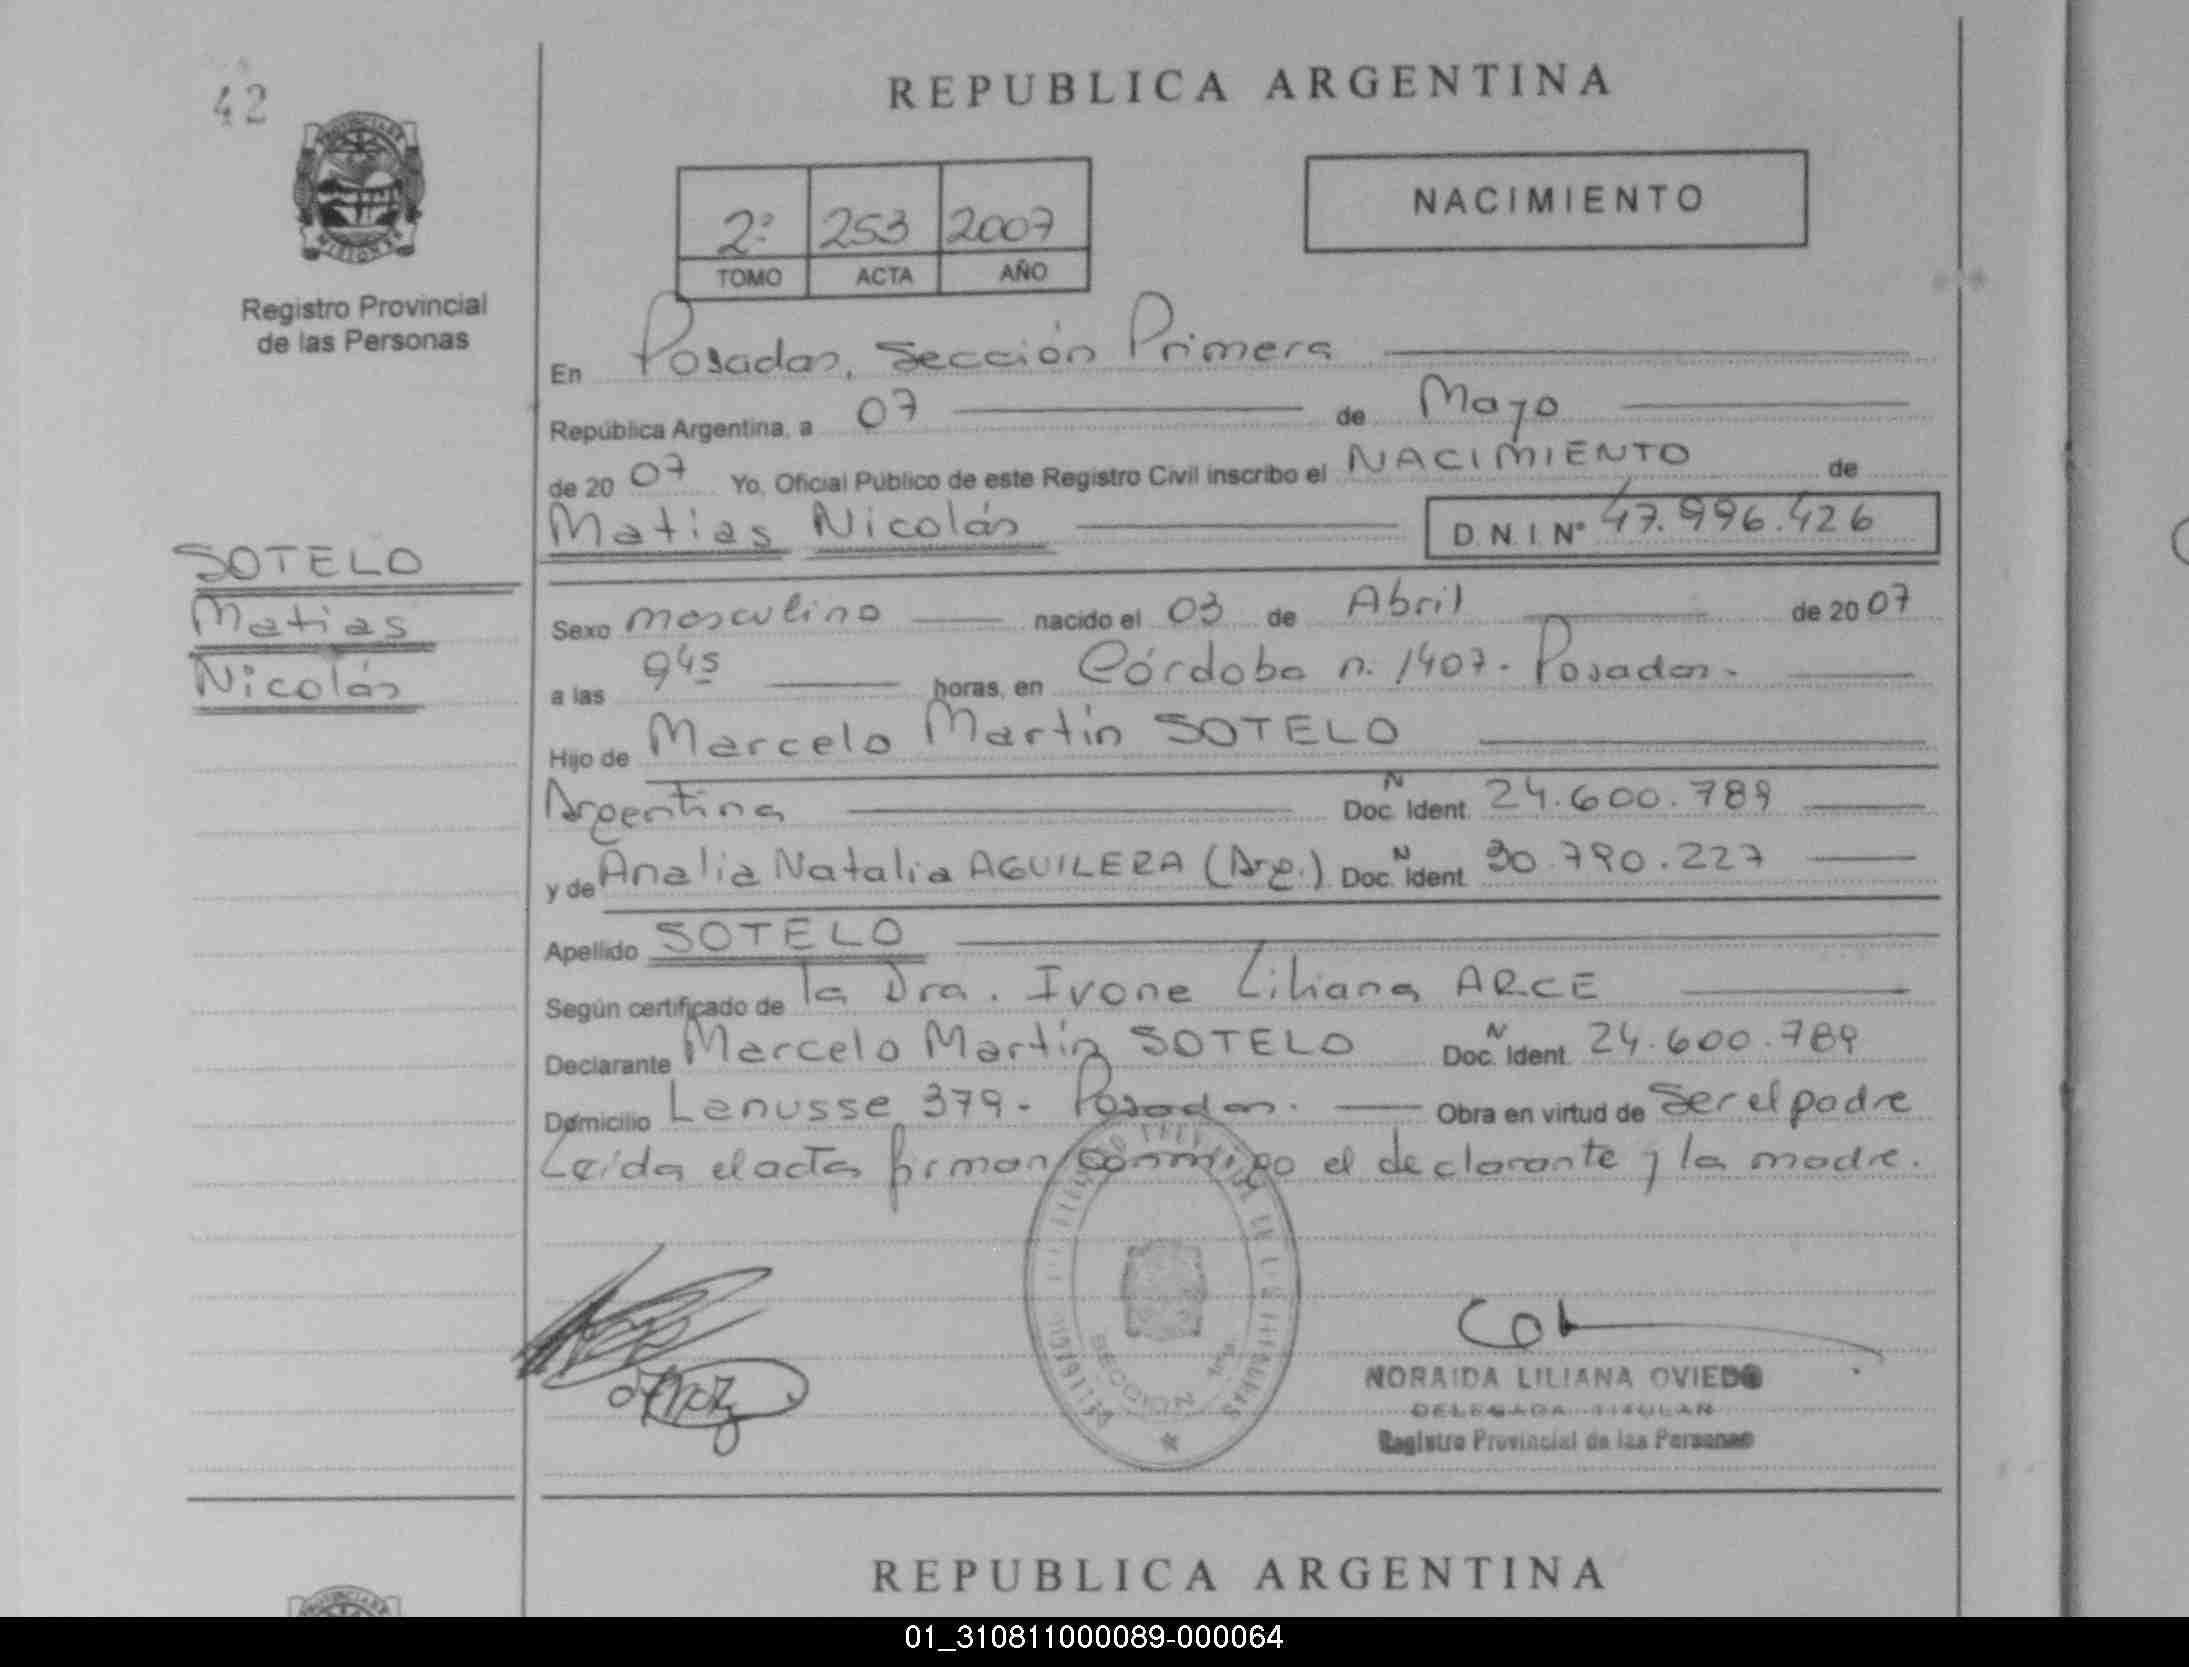 42
REPUBLICA ARGENTINA
PROVINCIA DE
MISIONES
2º 253 2007
TOMO ACTA AÑO
NACIMIENTO
Registro Provincial
de las Personas
En Posadas, Sección Primera
República Argentina, a 07 de Mayo
de 20 07 Yo, Oficial Público de este Registro Civil inscribo el NACIMIENTO de
Matias Nicolás D. N. I. Nº 47.996.426
SOTELO
Matias
Nicolás
Sexo masculino nacido el 03 de Abril de 20 07
a las 9 45 horas, en Córdoba n. 1407 - Posadas -
Hijo de Marcelo Martín SOTELO
Argentina N Doc. Ident. 24.600.789
y de Analia Natalia AGUILERA (Arg.) N Doc. Ident. 30.790.227
Apellido SOTELO
Según certificado de la Dra. Ivone Liliana ARCE
Declarante Marcelo Martín SOTELO N Doc. Ident. 24.600.789
Domicilio Lanusse 379 - Posadas. Obra en virtud de Ser el padre
Leída el acta firman conmigo el declarante y la madre.
SECCION 1ra
NORAIDA LILIANA OVIEDO
DELEGADA TITULAR
Registro Provincial de las Personas
REPUBLICA ARGENTINA
01_310811000089-000064